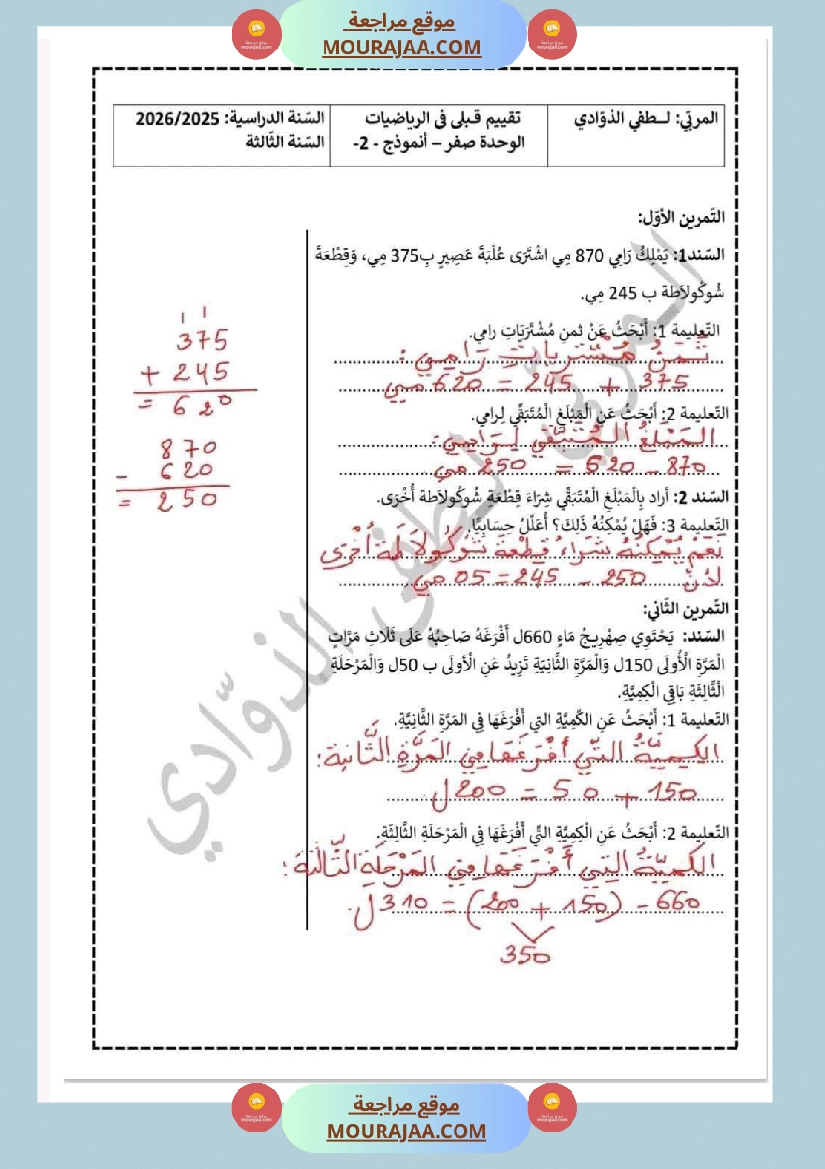 موقع مراجعة
MOURAJAA.COM
المربّي: لـطفي الذوّادي
تقييم قبلي في الرياضيات
الوحدة صفر – أنموذج - 2-
السّنة الدراسية: 2026/2025
السّنة الثّالثة
التّمرين الأوّل:
السّند1: يَمْلِكُ رَامِي 870 مِي اشْتَرَى عُلْبَةَ عَصِيرٍ بِ375 مِي، وَقِطْعَةَ
شُوكُولاَطة ب 245 مِي.
التّعليمة 1: أَبْحَثُ عَنْ ثَمنِ مُشْتَرَيَاتِ رامِي.
ثَمَنُ مُشْتَرياتِ رَامِي:
375 + 245 = 620 مي
التّعليمة 2: أَبْحَثُ عَنِ الْمَبْلَغِ الْمُتَبَقِّي لِرامِي.
المَبْلَغُ المُتَبَقِّي لِرَامِي:
870 – 620 = 250 مي
السّند 2: أراد بِالْمَبْلَغِ الْمُتَبَقِّي شِرَاءَ قِطْعَةِ شُوكُولاَطة أُخْرَى.
التّعليمة 3: فَهَلْ يُمْكِنُهُ ذَلِكَ؟ أُعَلِّلُ حِسَابِيًّا.
نَعَمْ يُمْكِنُهُ شِرَاءُ قِطْعَةَ شُوكُولَاطَة أُخْرَى
لأنّ 250 – 245 = 05 مي
التّمرين الثّاني:
السّند: يَحْتَوِي صِهْرِيجُ مَاءٍ 660ل أَفْرَغَهُ صَاحِبُهُ عَلَى ثَلَاثِ مَرَّاتٍ
الْمَرّةِ الْأُولَى 150ل وَالْمَرّةِ الثَّانِيَةِ تَزِيدُ عَنِ الْأولَى ب 50ل وَالْمَرْحَلَةِ
الْثَّالِثَةِ بَاقِي الْكِمِيَّةِ.
التّعليمة 1: أَبْحَثُ عَنِ الكِّمِيَّةِ التي أَفْرَغَهَا فِي المَرّةِ الثَّانِيَّةِ.
الكميّةُ التّي أفْرَغَهَا في المَرَّةِ الثَّانية:
150 + 50 = 200ل
التّعليمة 2: أَبْحَثُ عَنِ الْكِمِيَّةِ التّي أَفْرَغَهَا فِي الْمَرْحَلَةِ الثَّالِثَةِ.
الكميّةُ التي أَفْرَغَهَا في المَرْحَلَةِ الثَّالثَة:
660 – (150 + 200) = 310ل.
350
1 1
375
+ 245
= 620
870
- 620
= 250
المربّي لطفي الذوّادي
موقع مراجعة
MOURAJAA.COM